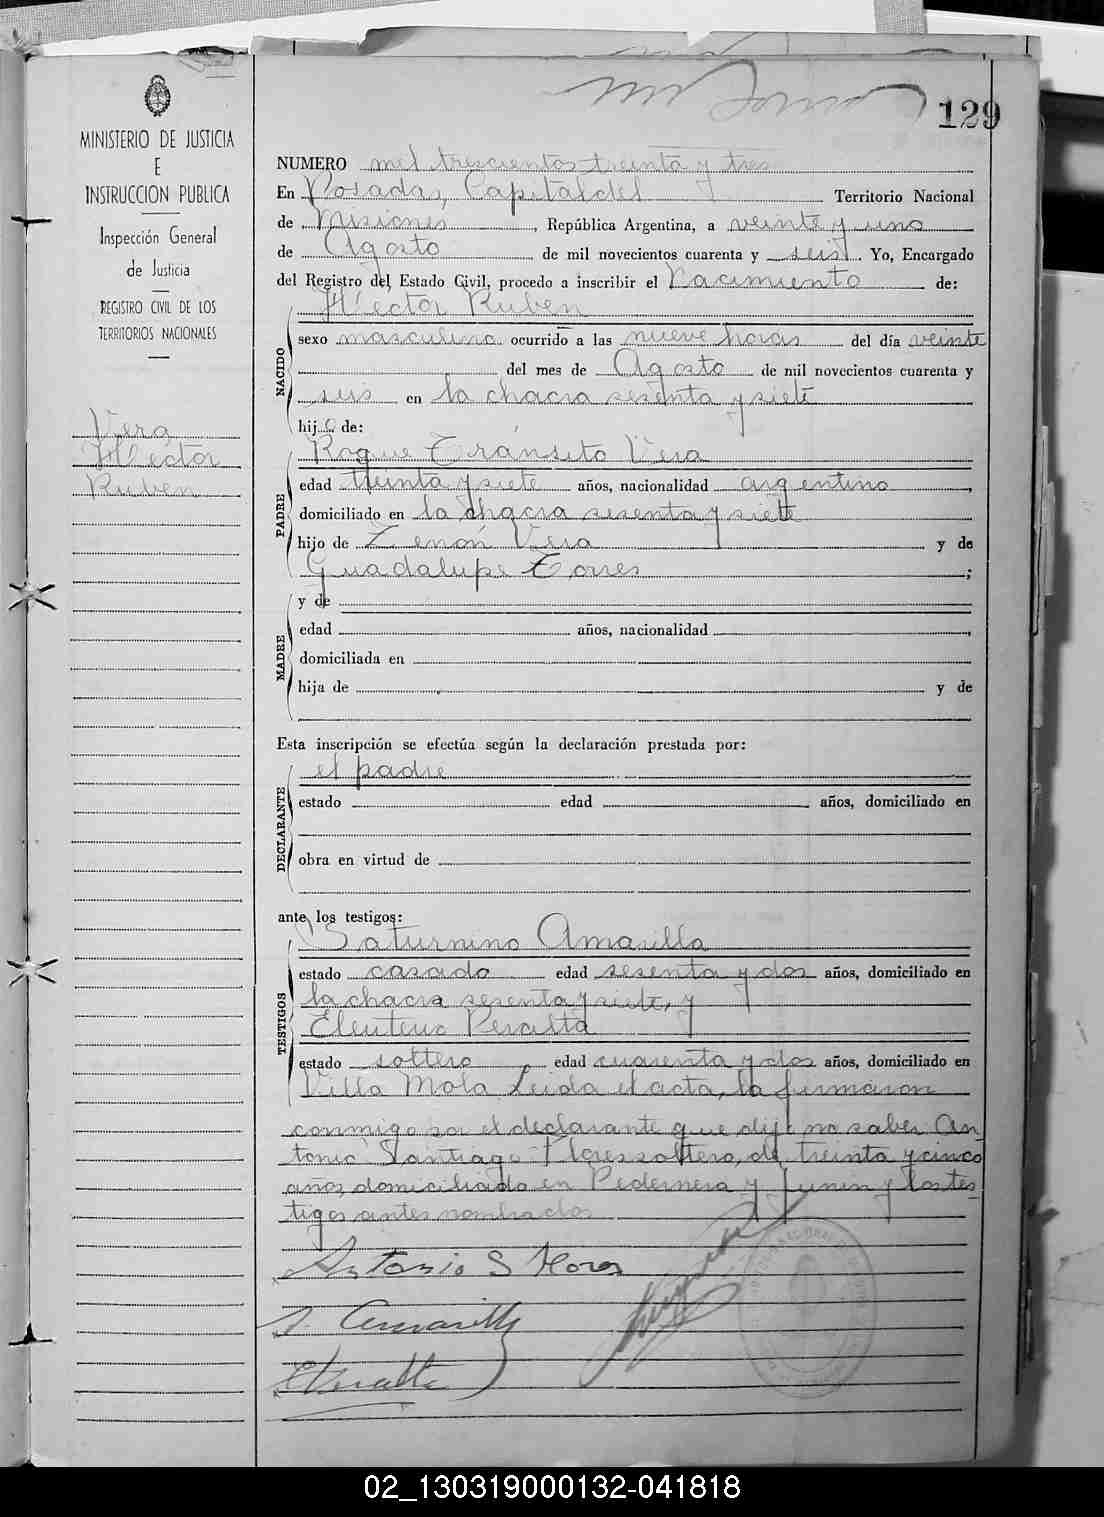 129
MINISTERIO DE JUSTICIA
E
INSTRUCCION PUBLICA
Inspección General
de Justicia
REGISTRO CIVIL DE LOS
TERRITORIOS NACIONALES
Vera
Héctor
Ruben
NUMERO mil trescientos treinta y tres
En Posadas, Capital del Territorio Nacional
de Misiones, República Argentina, a veinte y uno
de Agosto de mil novecientos cuarenta y seis. Yo, Encargado
del Registro del Estado Civil, procedo a inscribir el Nacimiento de:
Héctor Ruben
NACIDO
sexo masculino ocurrido a las nueve horas del día veinte
del mes de Agosto de mil novecientos cuarenta y
seis en la chacra sesenta y siete
hijo de:
PADRE
Roque Tránsito Vera
edad treinta y siete años, nacionalidad argentino,
domiciliado en la chacra sesenta y siete
hijo de Zenón Vera y de
Guadalupe Torres;
MADRE
y de
edad años, nacionalidad,
domiciliada en
hija de y de
Esta inscripción se efectúa según la declaración prestada por:
DECLARANTE
el padre
estado edad años, domiciliado en
obra en virtud de
ante los testigos:
TESTIGOS
Saturnino Amarilla
estado casado edad sesenta y dos años, domiciliado en
la chacra sesenta y siete, y
Eleuterio Peralta
estado soltero, edad cuarenta y dos años, domiciliado en
Villa Mola Leida el acta, la firmaron
conmigo por el declarante que dijo no saber An
tonio Santiago Flores soltero, de treinta y cinco
años, domiciliado en Pedernera y Junin y los tes
tigos antes nombrados
Antonio S Flores
S. Amarilla
E Peralta
02_130319000132-041818